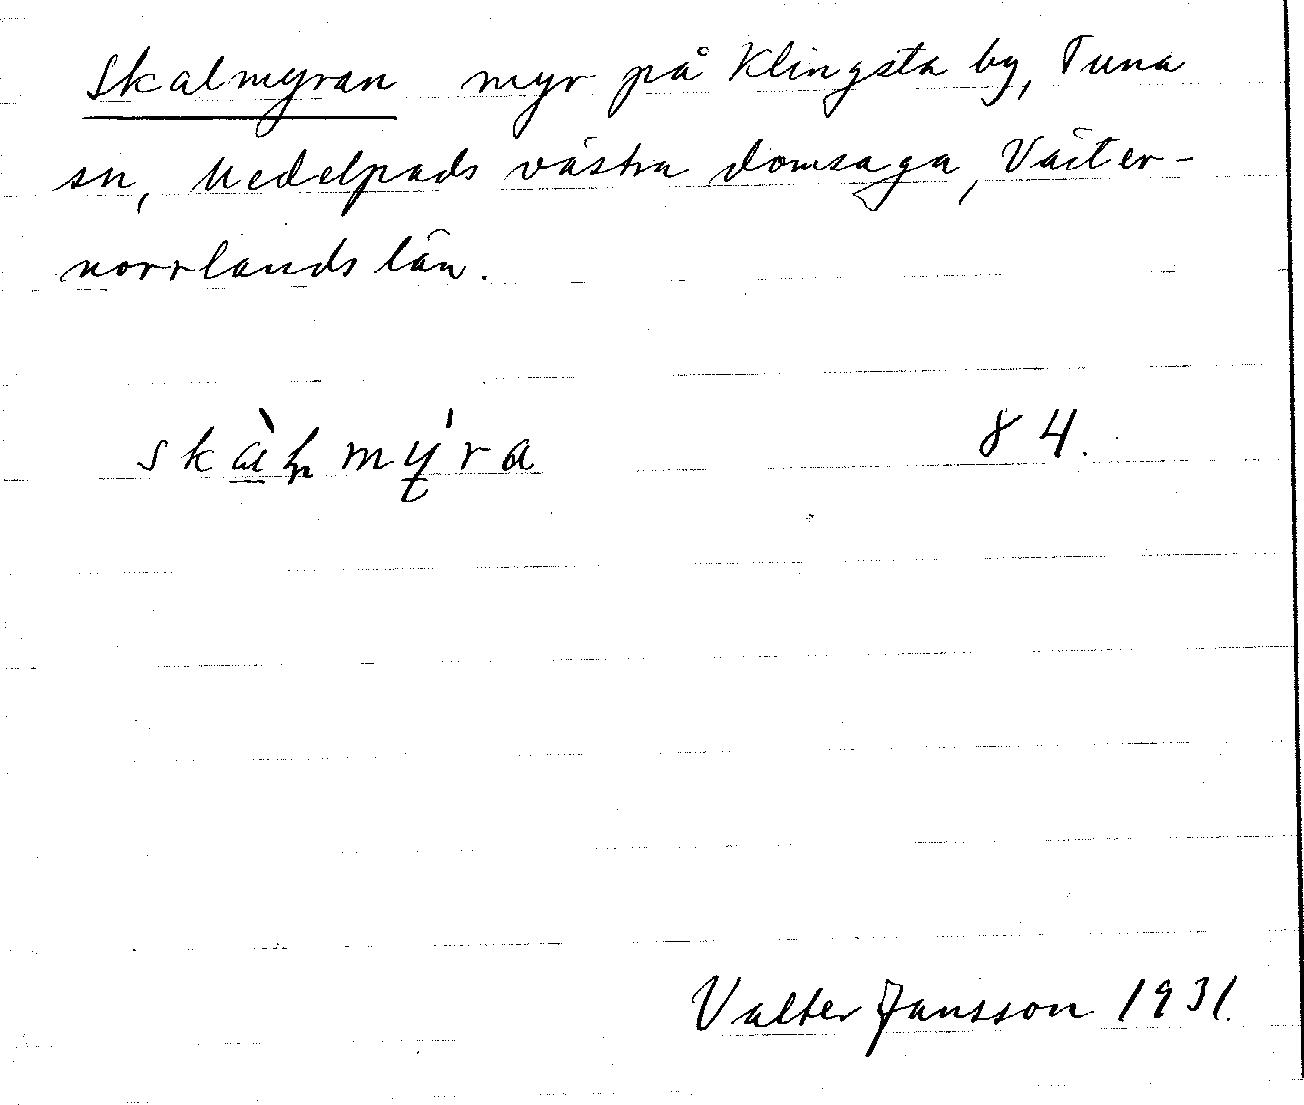 Skalmyran myr på Klingsta by, Tuna
sn, Medelpads västra domsaga, Väster-
norrlands län.
84.
Valter Jansson 1931.